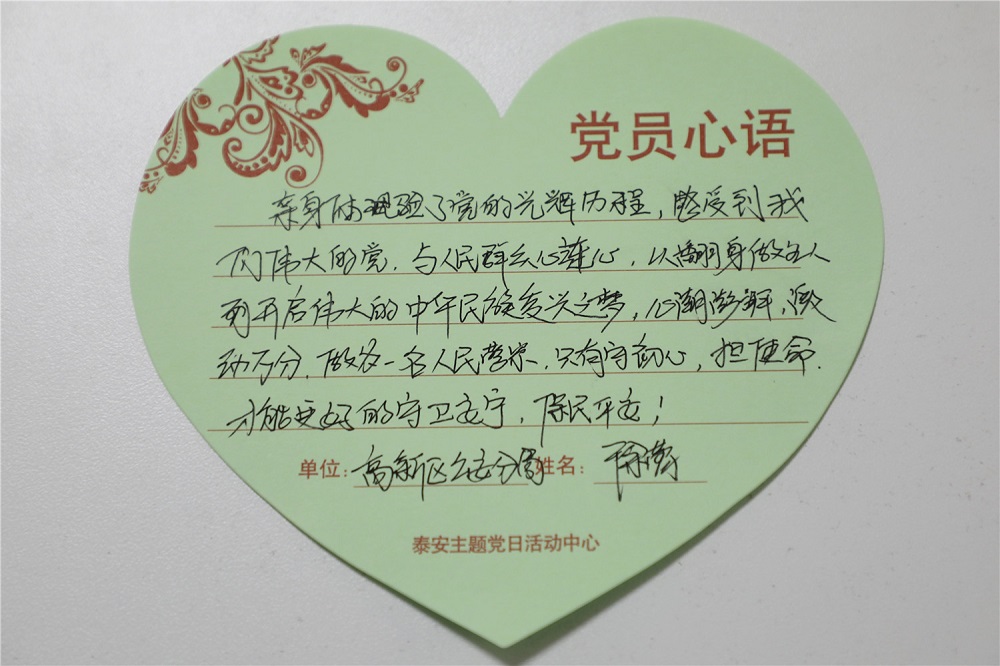 党员心语
亲身体现验了党的光辉历程，感受到我
们伟大的党，与人民群众心连心，从翻身做主人
到开启伟大的中华民族复兴之梦，心潮澎湃，激
动万分，做为一名人民警察，只有守初心，担使命，
才能更好的守卫安宁，保民平安！
单位：高新区公安分局 姓名：陈
泰安主题党日活动中心